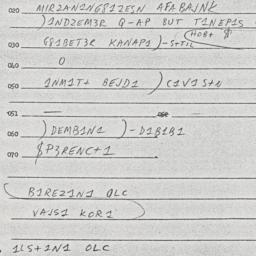 020 MIRZANINGS1ZESN AFABAINK
)INDZEM3R Q-AP BUT T1NEP1S
(HOB+ $
030 G81BET3R KANAP1)-S+TIL
040 0
050 INM1T+ BEJD1 )C1V1S+N
051 —
060 )DEMB1N1 )-D1B1B1
070 $P3RENC+1
(B1REZ1N1 OLC
VAJS1 KOR1)
1LS+1N1 OLC